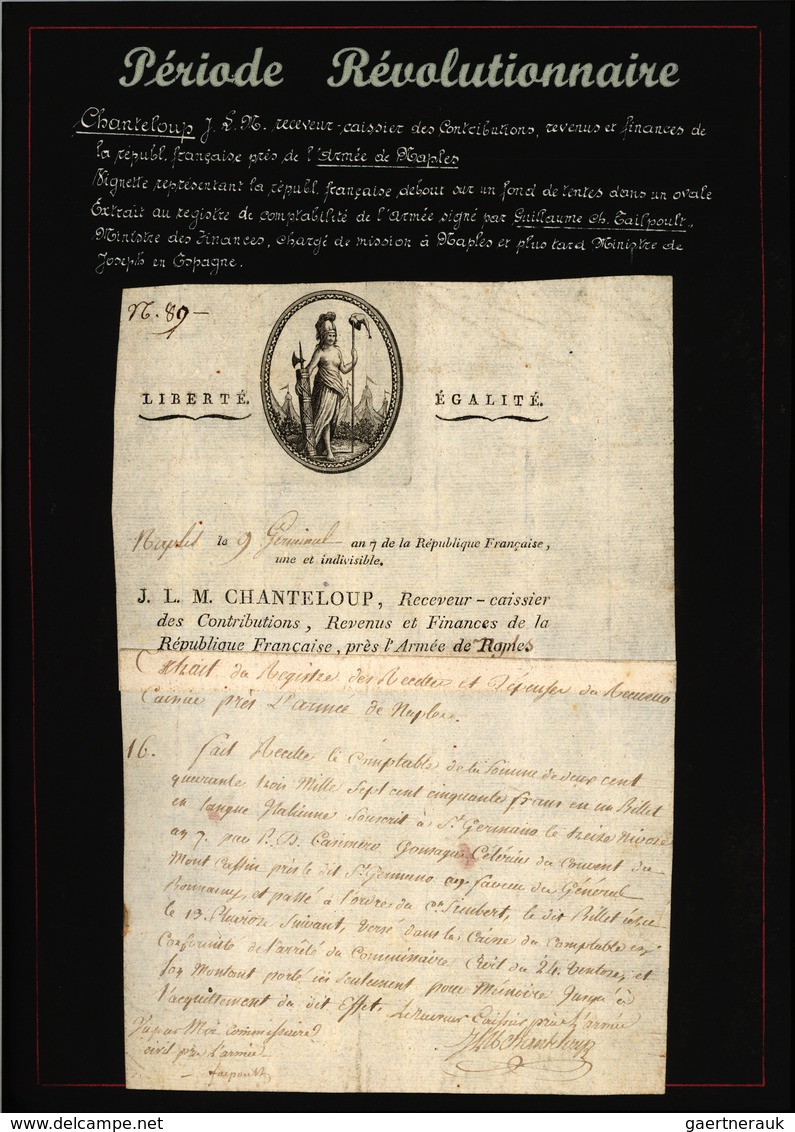 Période Révolutionnaire
Chanteloup J. L. M. receveur-caissier des Contributions, revenus et finances de
la républ. française près de l'Armée de Naples
Vignette représentant la républ. française debout sur un fond de tentes dans un ovale
Extrait au registre de comptabilité de l'Armée signé par Guillaume Ch. Failpoult,
Ministre des Finances, chargé de mission à Naples et plus tard Ministre de
Joseph en Espagne.
N. 89 —
LIBERTÉ. ÉGALITÉ.
Naples le 9 Germinal an 7 de la République Française,
une et indivisible.
J. L. M. CHANTELOUP, Receveur-caissier
des Contributions, Revenus et Finances de la
République Française, près l'Armée de Naples
Extrait du Registre des Recettes et Dépenses du Receveur
Caissier près L'armée de Naples.
16. fait Recette le Comptable de la Somme de deux cent
quarante trois Mille Sept cent cinquante francs en un Billet
en langue Italienne Souscrit à St. Germano le treize Nivose
an 7. par P. D. Casimiro Gonzague Celérier du Couvent du
Mont Cassin près le dit St. Germano en faveur du Général
Bonnamy, et passé à l'ordre du Cen. Simbert, le dit Billet échu
le 13 Pluviose Suivant, versé dans la Caisse du Comptable en
Conformité de l'arrêté du Commissaire Civil du 24. Ventose, et
son Montant porté ici seulement pour Mémoire Jusqu'à
l'acquittement du dit Effet. Le Receveur Caissier près L'armée
Vu par Moi Commissaire JLMChanteloup
civil près L'armée
faipoult
gaertnerauk / delcampe.net